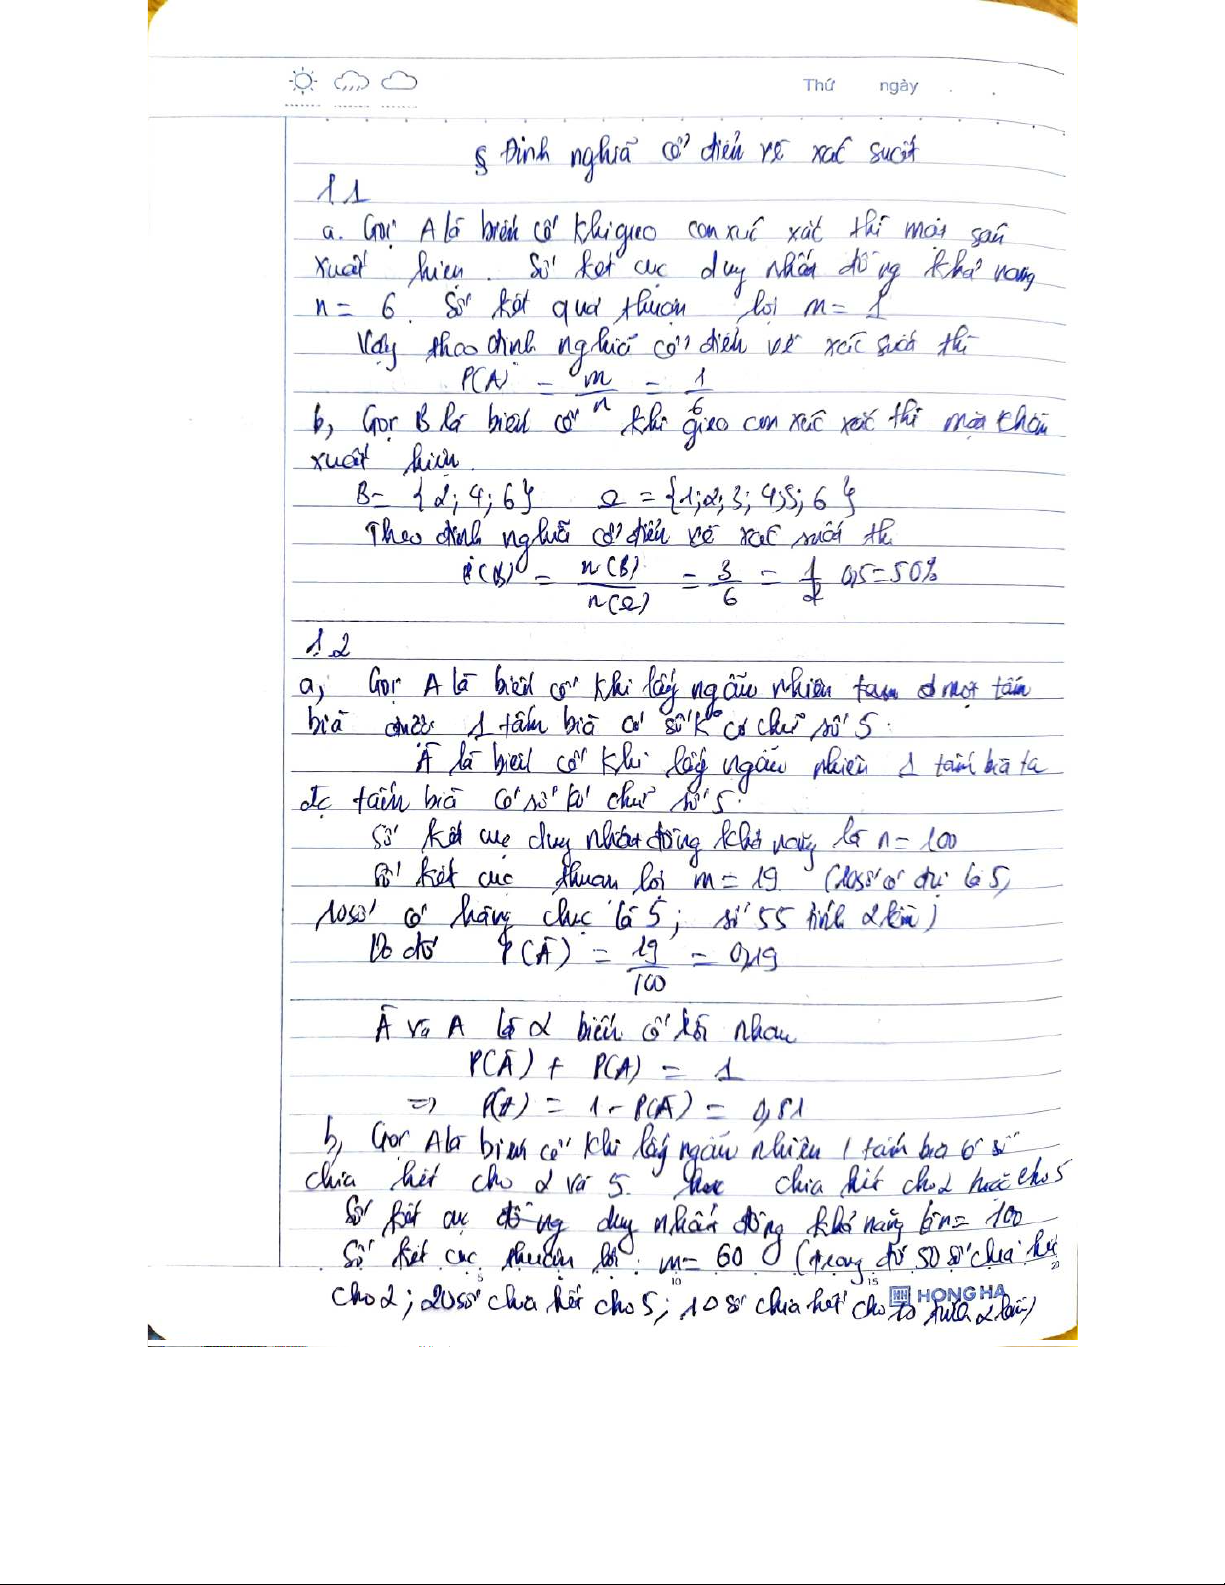 Thứ ngày
§ Định nghĩa cổ điển về xác suất
1.1
a. Gọi A là biến cố khi gieo con xúc xắc thì mặt sáu
xuất hiện. Số kết cục duy nhất đồng khả năng
n = 6. Số kết quả thuận lợi m = 1
Vậy theo định nghĩa cổ điển về xác suất thì
P(A) = m/n = 1/6
b, Gọi B là biến cố khi gieo con xúc xắc thì mặt chẵn
xuất hiện.
B = {2; 4; 6} Ω = {1; 2; 3; 4; 5; 6}
Theo định nghĩa cổ điển về xác suất thì
P(B) = n(B)/n(Ω) = 3/6 = 1/2 0,5 = 50%
1.2
a, Gọi A là biến cố khi lấy ngẫu nhiên một tấm
bìa được 1 tấm bìa có số ko có chữ số 5.
Ā là biến cố khi lấy ngẫu nhiên 1 tấm bìa ta
đc tấm bìa có số có chữ số 5.
Số kết cục duy nhất đồng khả năng là n = 100
Số kết cục thuận lợi m = 19 (10 số có đv là 5,
10 số có hàng chục là 5; số 55 tính 2 lần)
Do đó P(Ā) = 19/100 = 0,19
Ā và A là 2 biến cố đối nhau
P(Ā) + P(A) = 1
=> P(A) = 1 - P(Ā) = 0,81
b, Gọi A là biến cố khi lấy ngẫu nhiên 1 tấm bìa có số
chia hết cho 2 và 5. chia hết cho 2 hoặc cho 5
Số kết cục đồng duy nhất đồng khả năng là n = 100
Số kết cục thuận lợi: m = 60 (trong đó 50 số chia hết
5 10 15 20
cho 2; 20 số chia hết cho 5; 10 số chia hết cho 10 tính 2 lần)
HONG HA